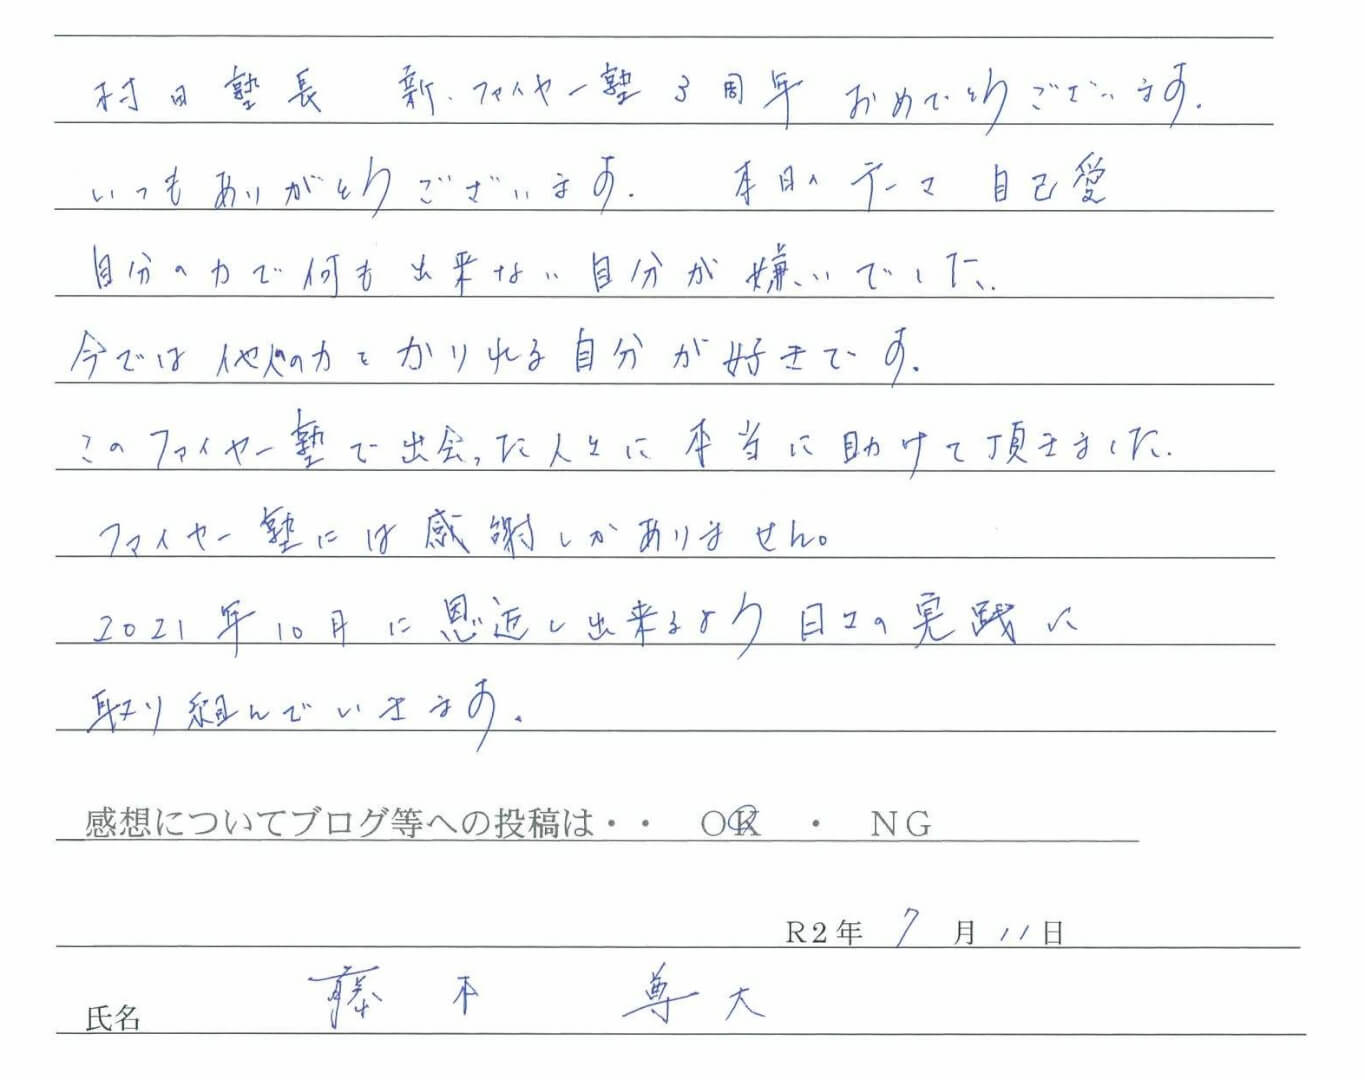 村田塾長 新・ファイヤー塾3周年 おめでとうございます。
いつもありがとうございます。 本日のテーマ 自己愛
自分の力で何も出来ない自分が嫌いでした。
今では他人の力をかりれる自分が好きです。
このファイヤー塾で出会った人々に本当に助けて頂きました。
ファイヤー塾には感謝しかありません。
2021年10月に恩返し出来るよう日々の実践に
取り組んでいきます。
感想についてブログ等への投稿は・・ OK ・ NG
R2年 7月11日
氏名 藤本 尊大